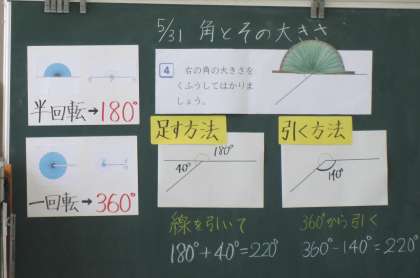 5/31 角とその大きさ
半回転→180°
4 右の角の大きさを
くふうしてはかりま
しょう。
一回転→360°
足す方法
180°
40°
線を引いて
180°+40°=220°
引く方法
140°
360°から引く
360°-140°=220°